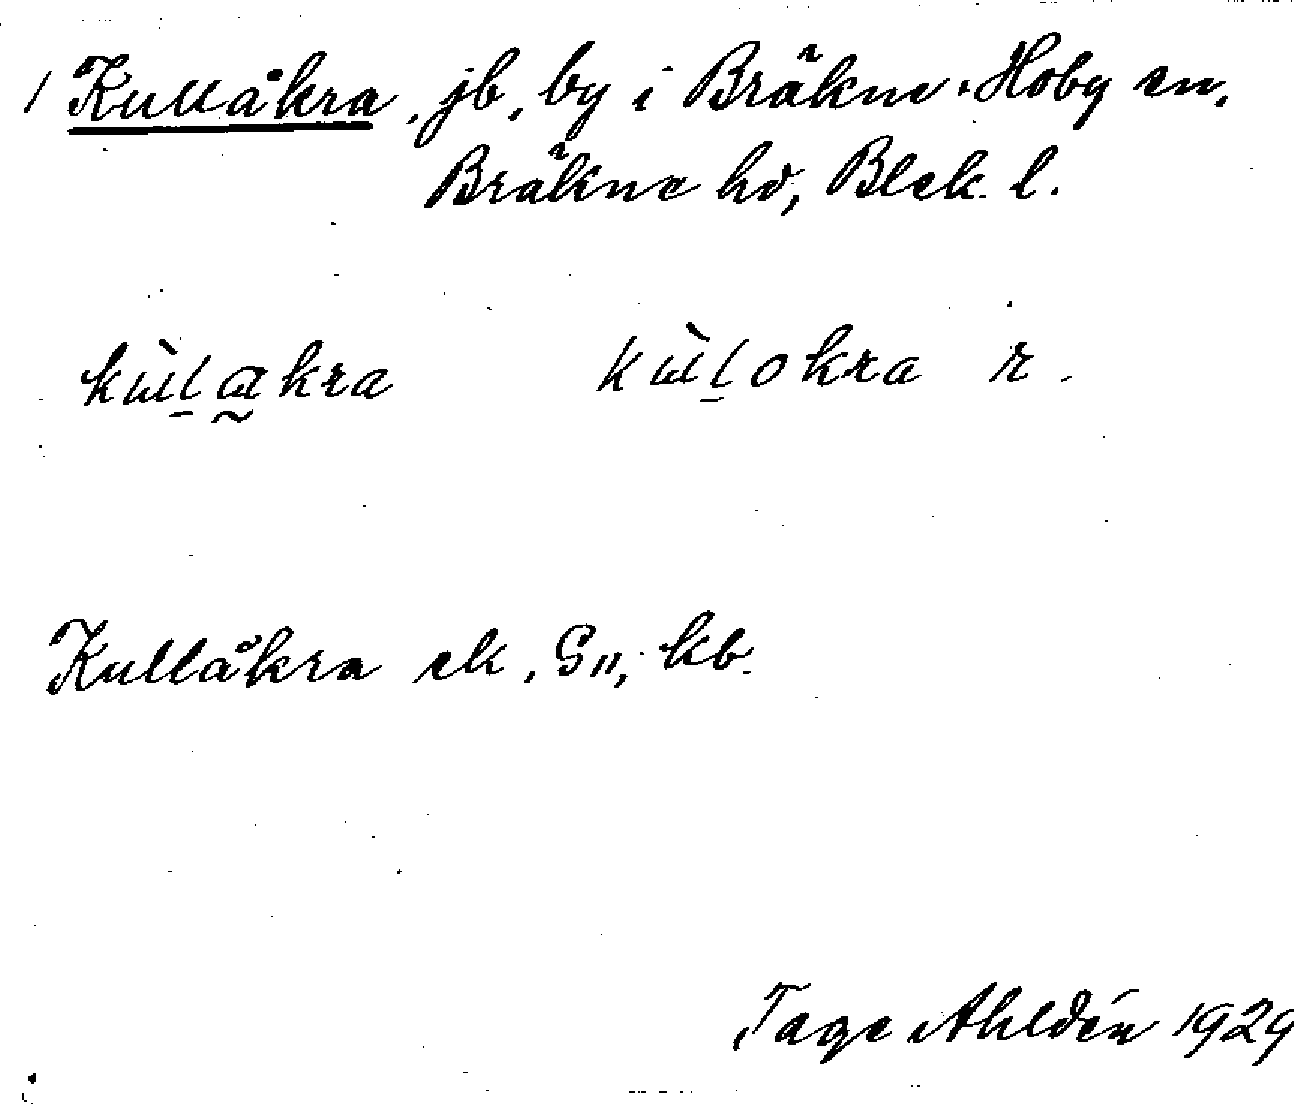 1 Kullåkra, jb, by i Bräkne-Hoby sn,
Bräkne hd, Blek. l.
kɯ̀l̠ɑ̰kra kɯ̀l̠okra r.
Kullåkra ek, G", kb.
Tage Ahldén 1929